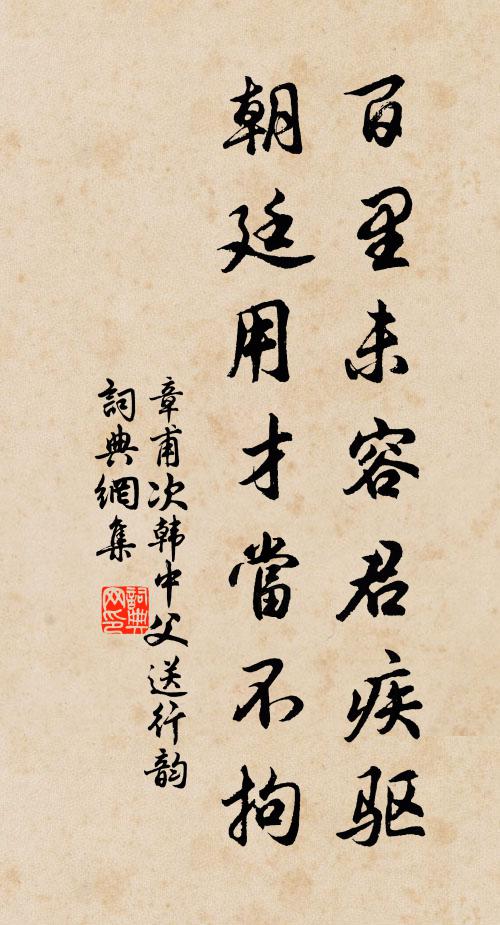 百里未容君疾驱
朝廷用才當不拘
章甫次韩中父送行韵
詞典網集
詞典网印